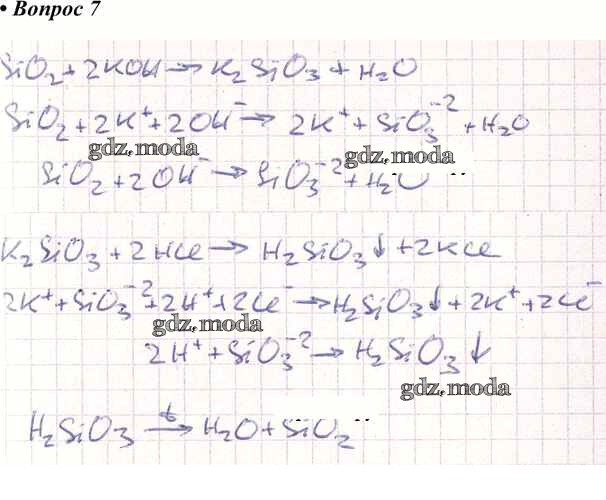 • Вопрос 7
SiO₂ + 2KOH → K₂SiO₃ + H₂O
SiO₂ + 2K⁺ + 2OH⁻ → 2K⁺ + SiO₃⁻² + H₂O
gdz.moda gdz.moda
SiO₂ + 2OH⁻ → SiO₃⁻² + H₂O
K₂SiO₃ + 2HCl → H₂SiO₃↓ + 2KCl
2K⁺ + SiO₃⁻² + 2H⁺ + 2Cl⁻ → H₂SiO₃↓ + 2K⁺ + 2Cl⁻
gdz.moda
2H⁺ + SiO₃⁻² → H₂SiO₃↓
gdz.moda
H₂SiO₃ →ᵗ H₂O + SiO₂